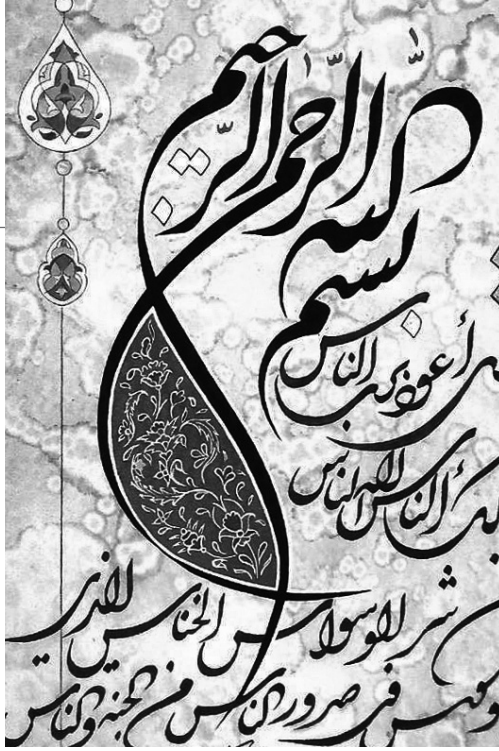 بسم الله الرحمن الرحيم
أعوذ برب الناس
الناس اله الناس
شر الوسواس الخناس الذي
في صدور الناس من الجنه والناس